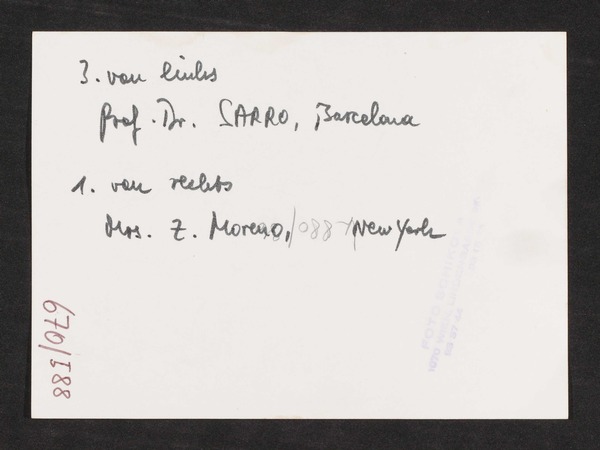 3. von links
Prof. Dr. SARRO, Barcelona
1. von rechts
Mrs. Z. Moreno, New York
670/188
FOTO